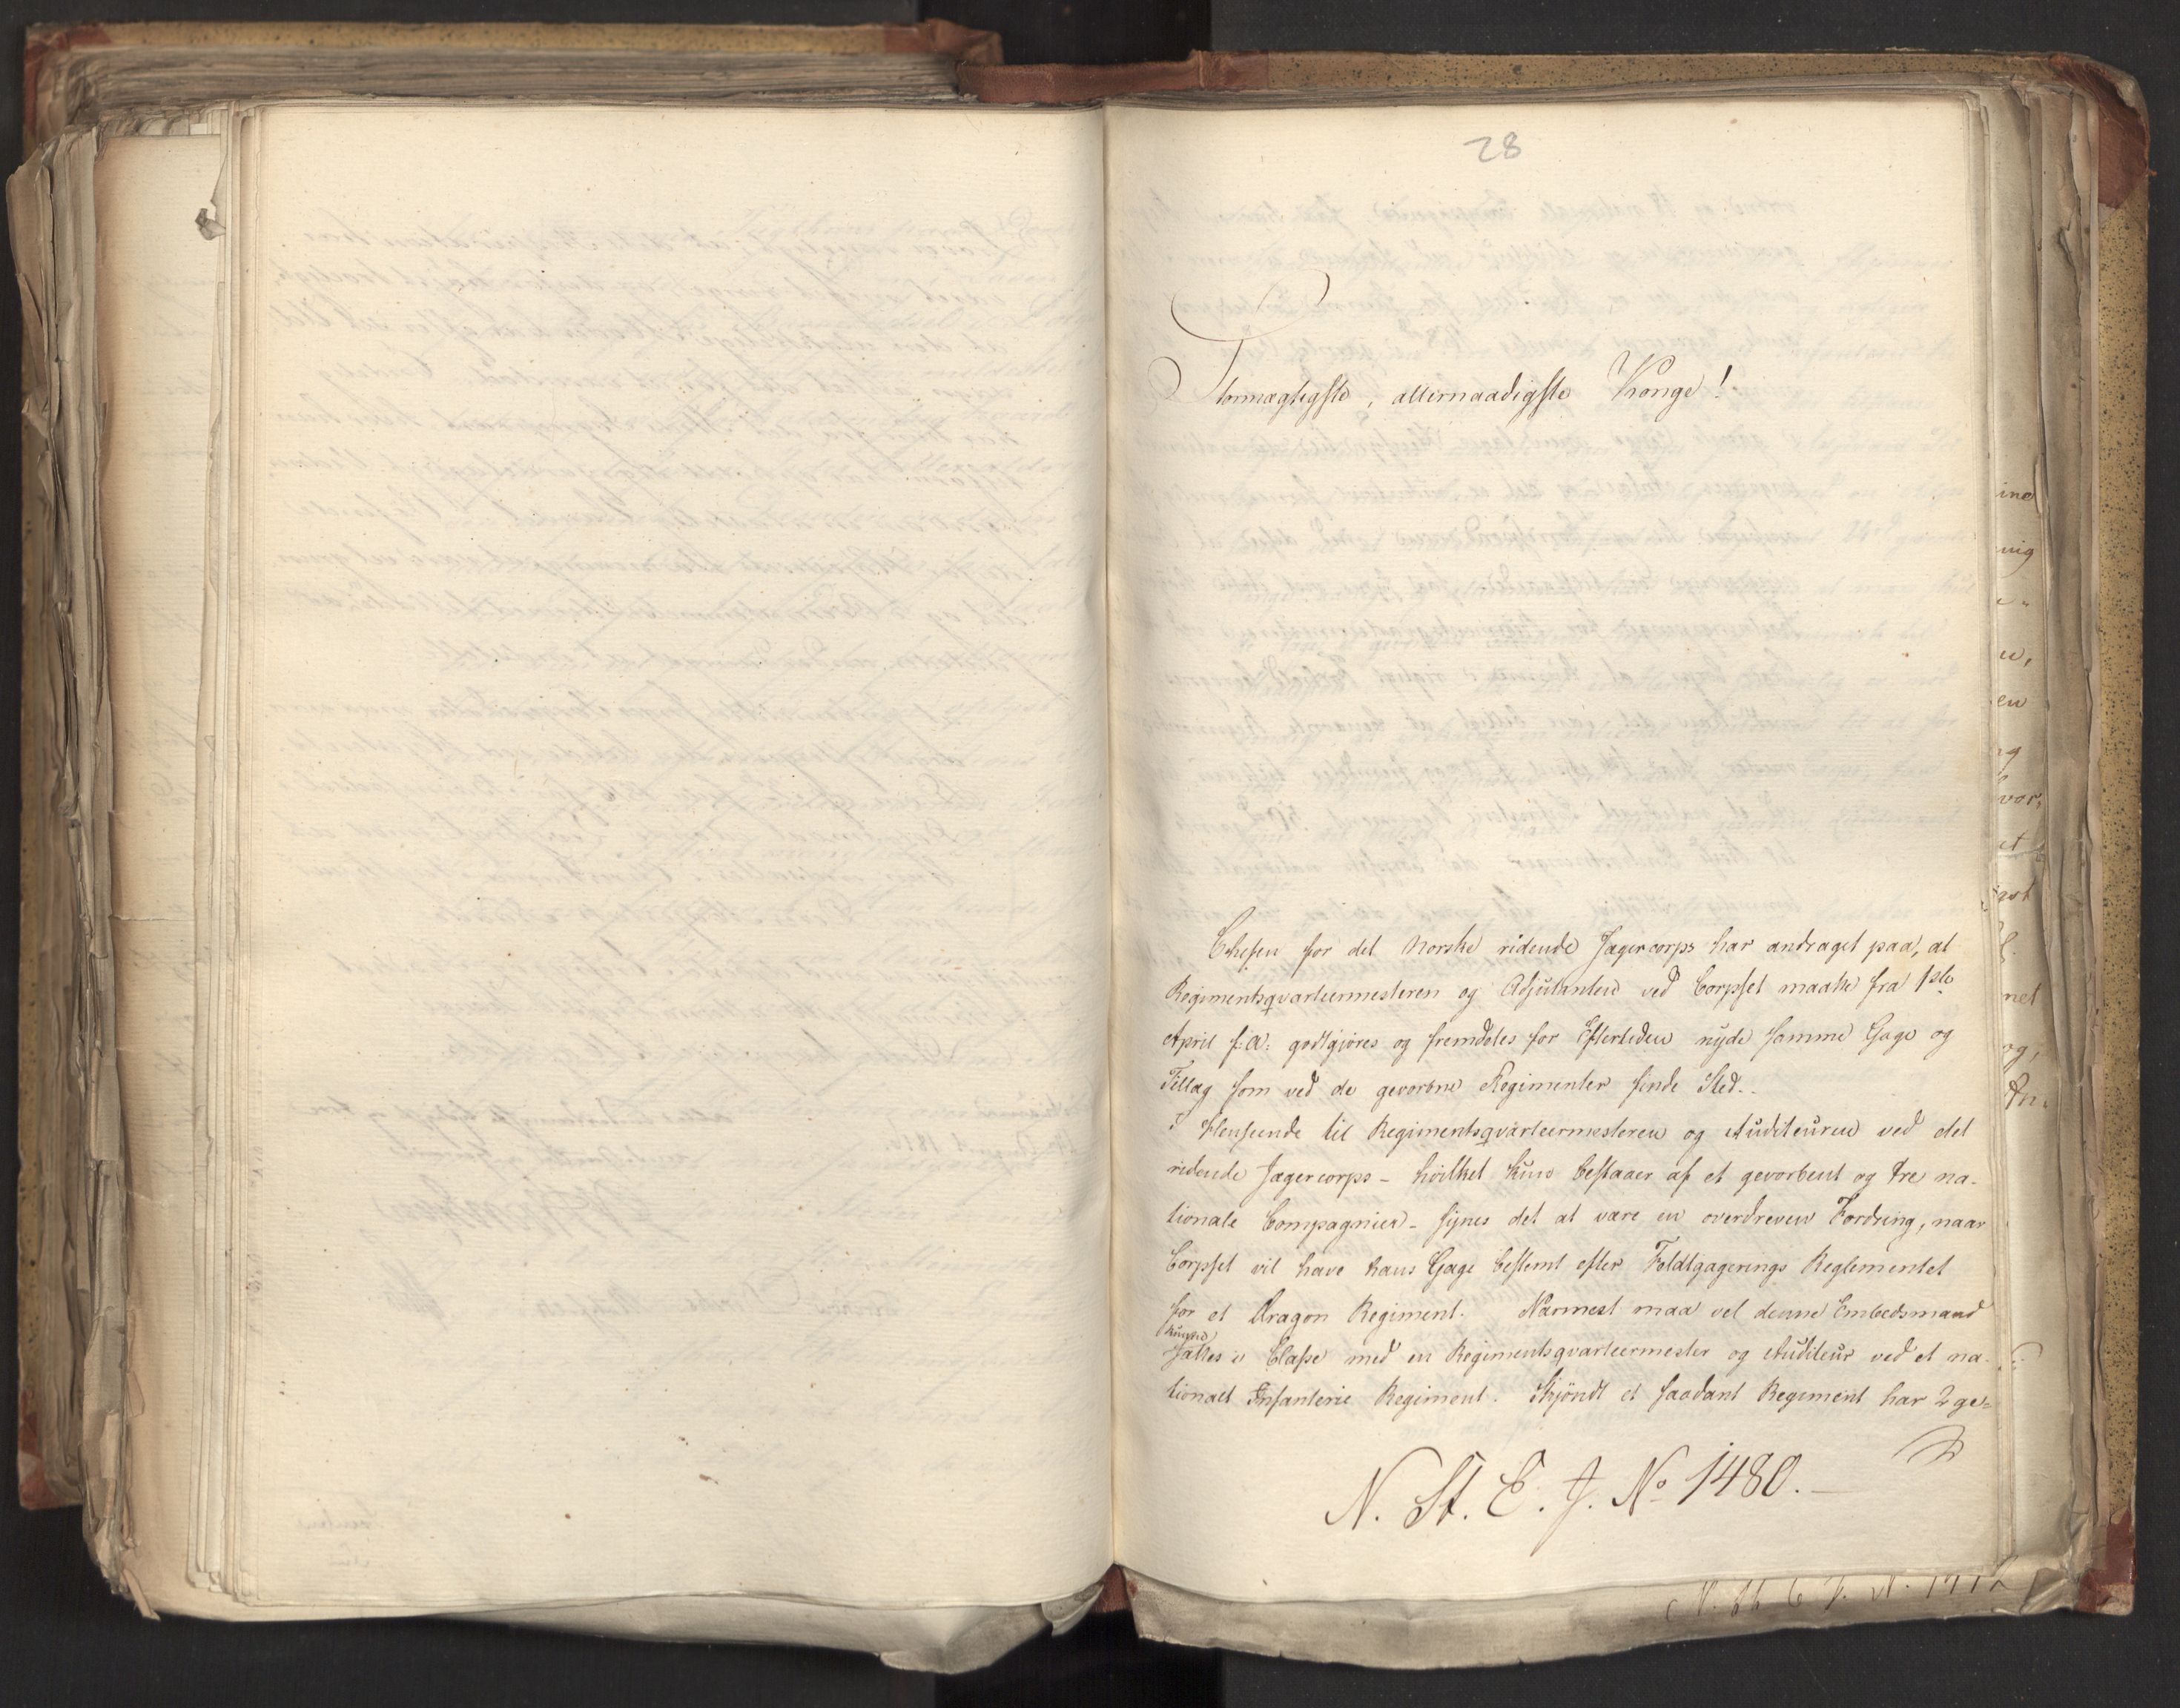 28
Stormægtigste, allernaadigste Konge!
Chefen for det Norske ridende Jægercorps har andraget paa, at
Regimentsqvarteermesteren og Adjutanten ved Corpset maatte fra 1ste
April f: A: godtgjöres og fremdeles for Eftertiden nyde samme Gage og
Tillæg som ved de gevorbne Regimenter finde Sted.
I Henseende til Regimentsqvarteermesteren og Auditeuren ved det
ridende Jægercorps - hvilket kuns bestaaer af et gevorbent og tre na-
tionale Compagnier - synes det at være en overdreven Fordring, naar
Corpset vil have hans Gage bestemt efter Feldtgagerings Reglementet
for et Dragon Regiment. Nærmest maa vel denne Embedsmand
kunne
sættes i Classe med en Regimentsqvarteermester og Auditeur ved et na-
tionalt Infanterie Regiment. Skjöndt et saadant Regiment har 2 ge-
N. St. E. J. No 1480.